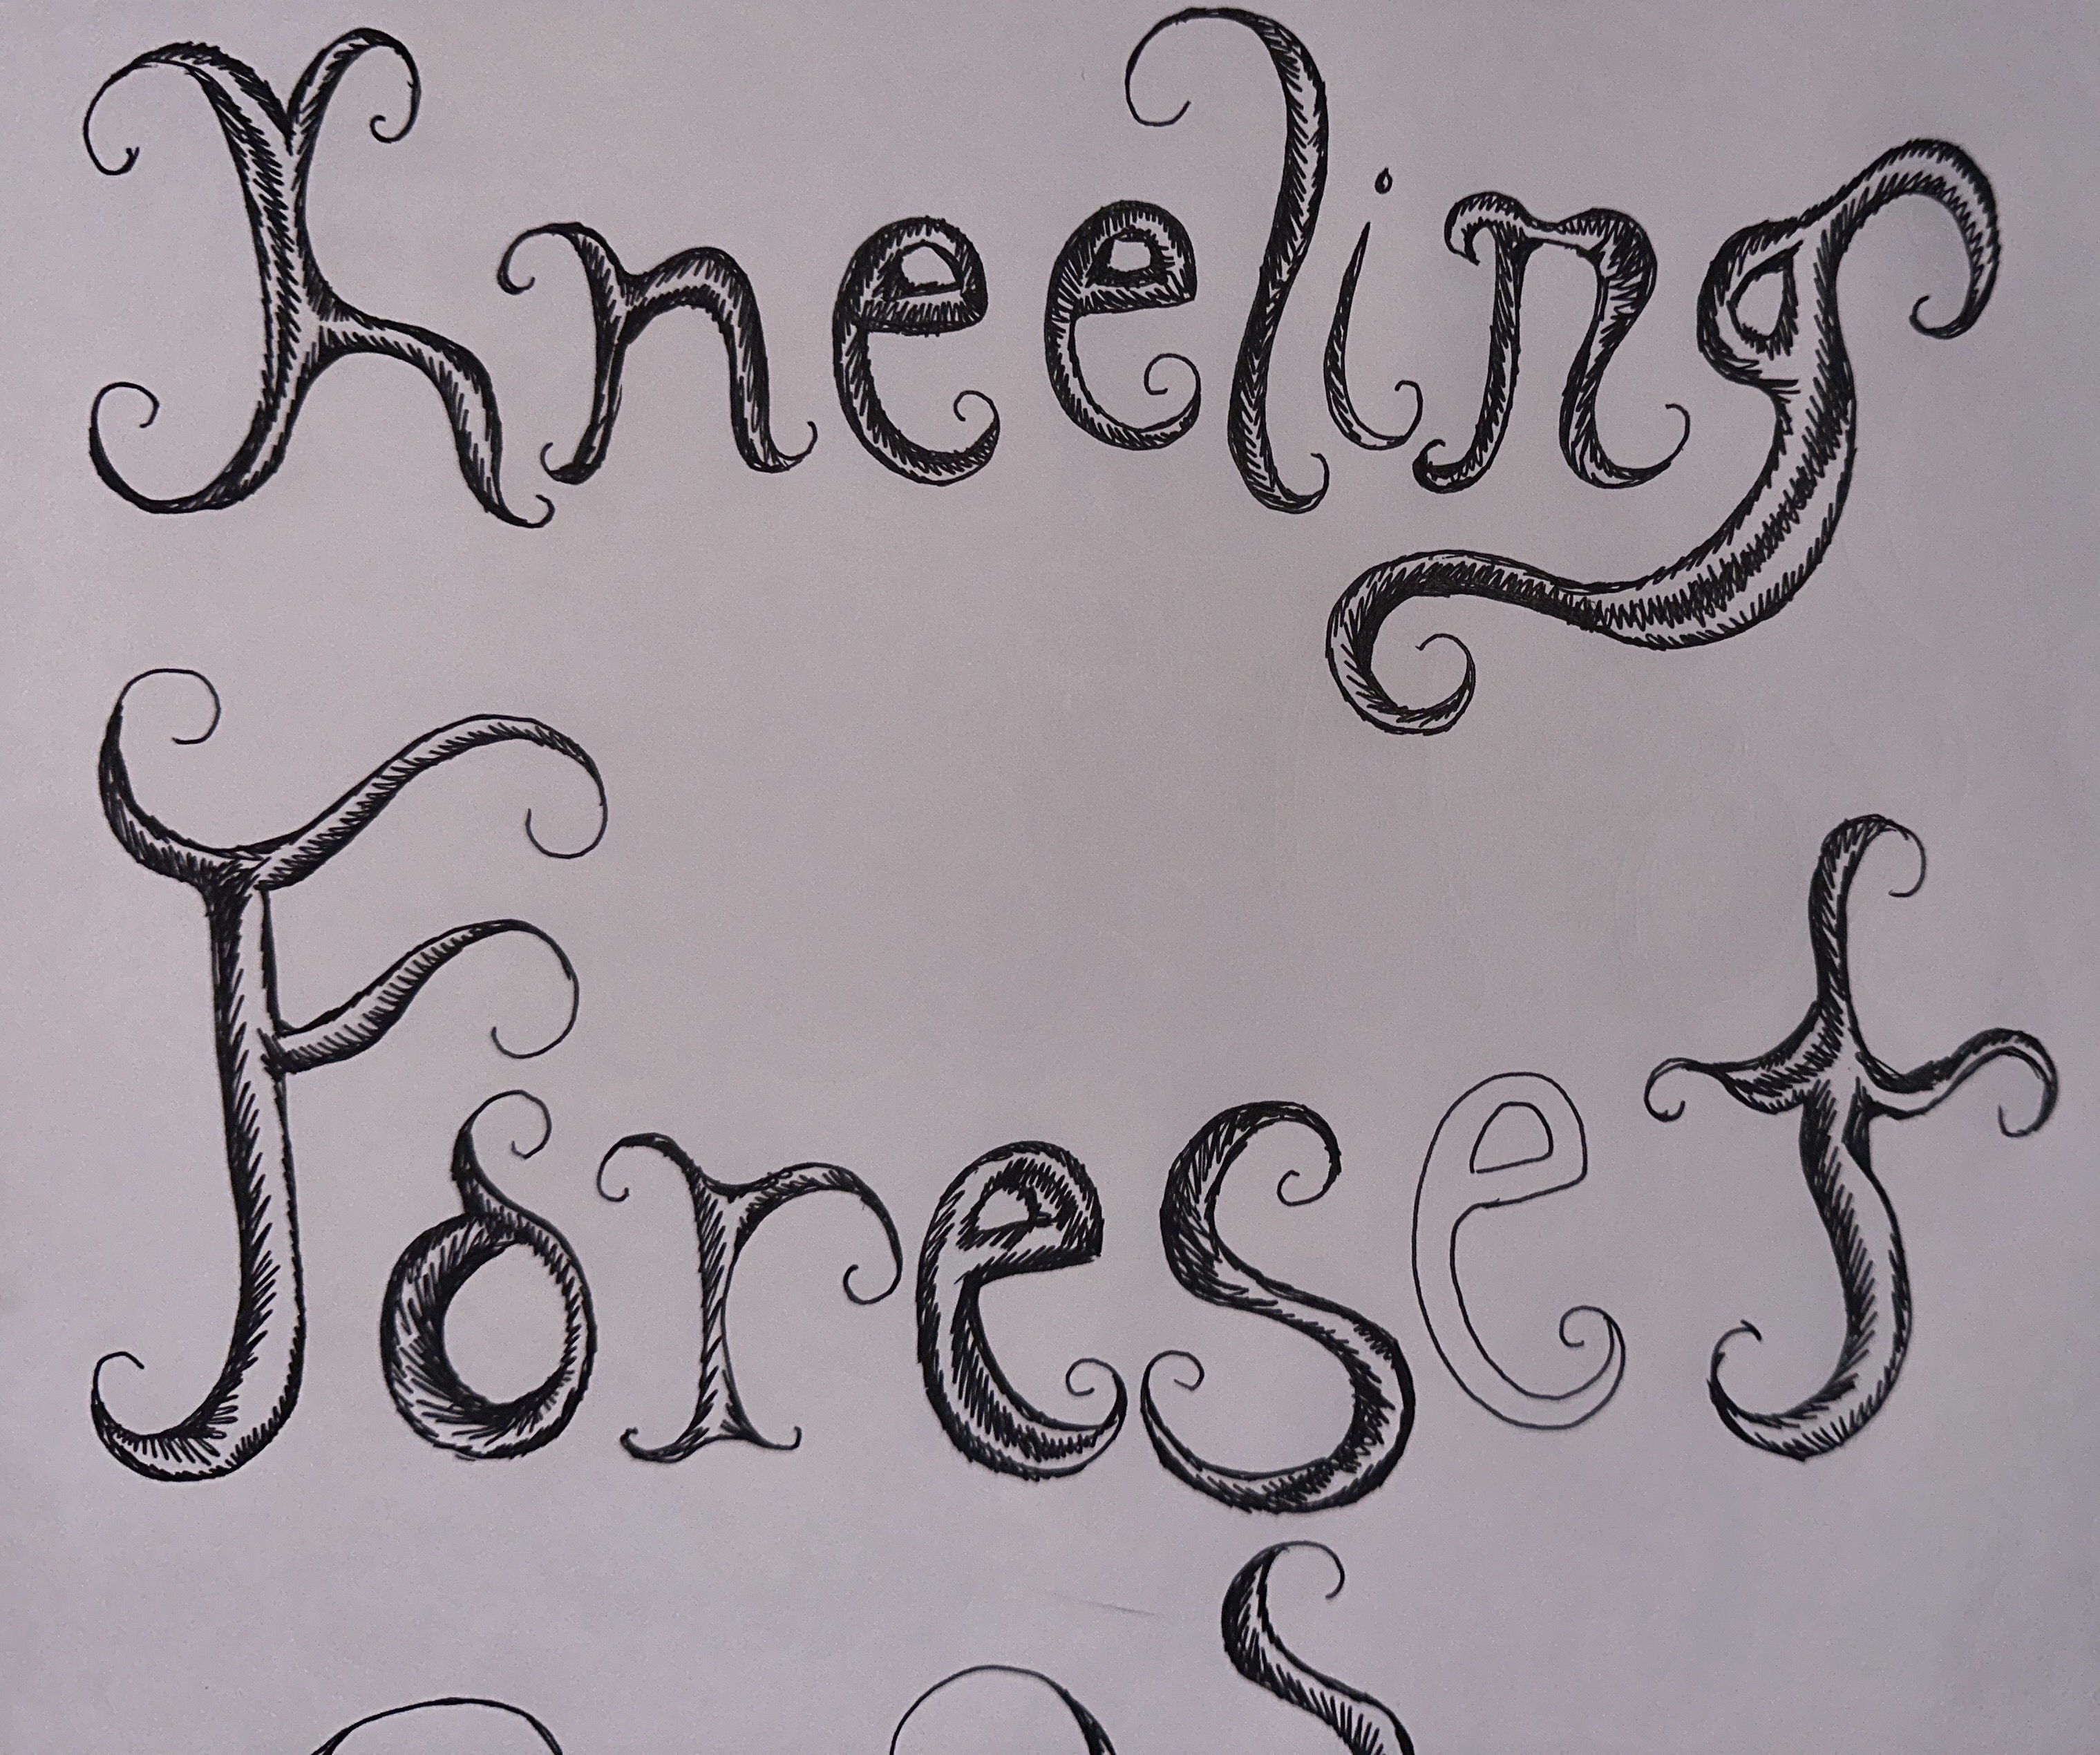 Kneeling
Foreset